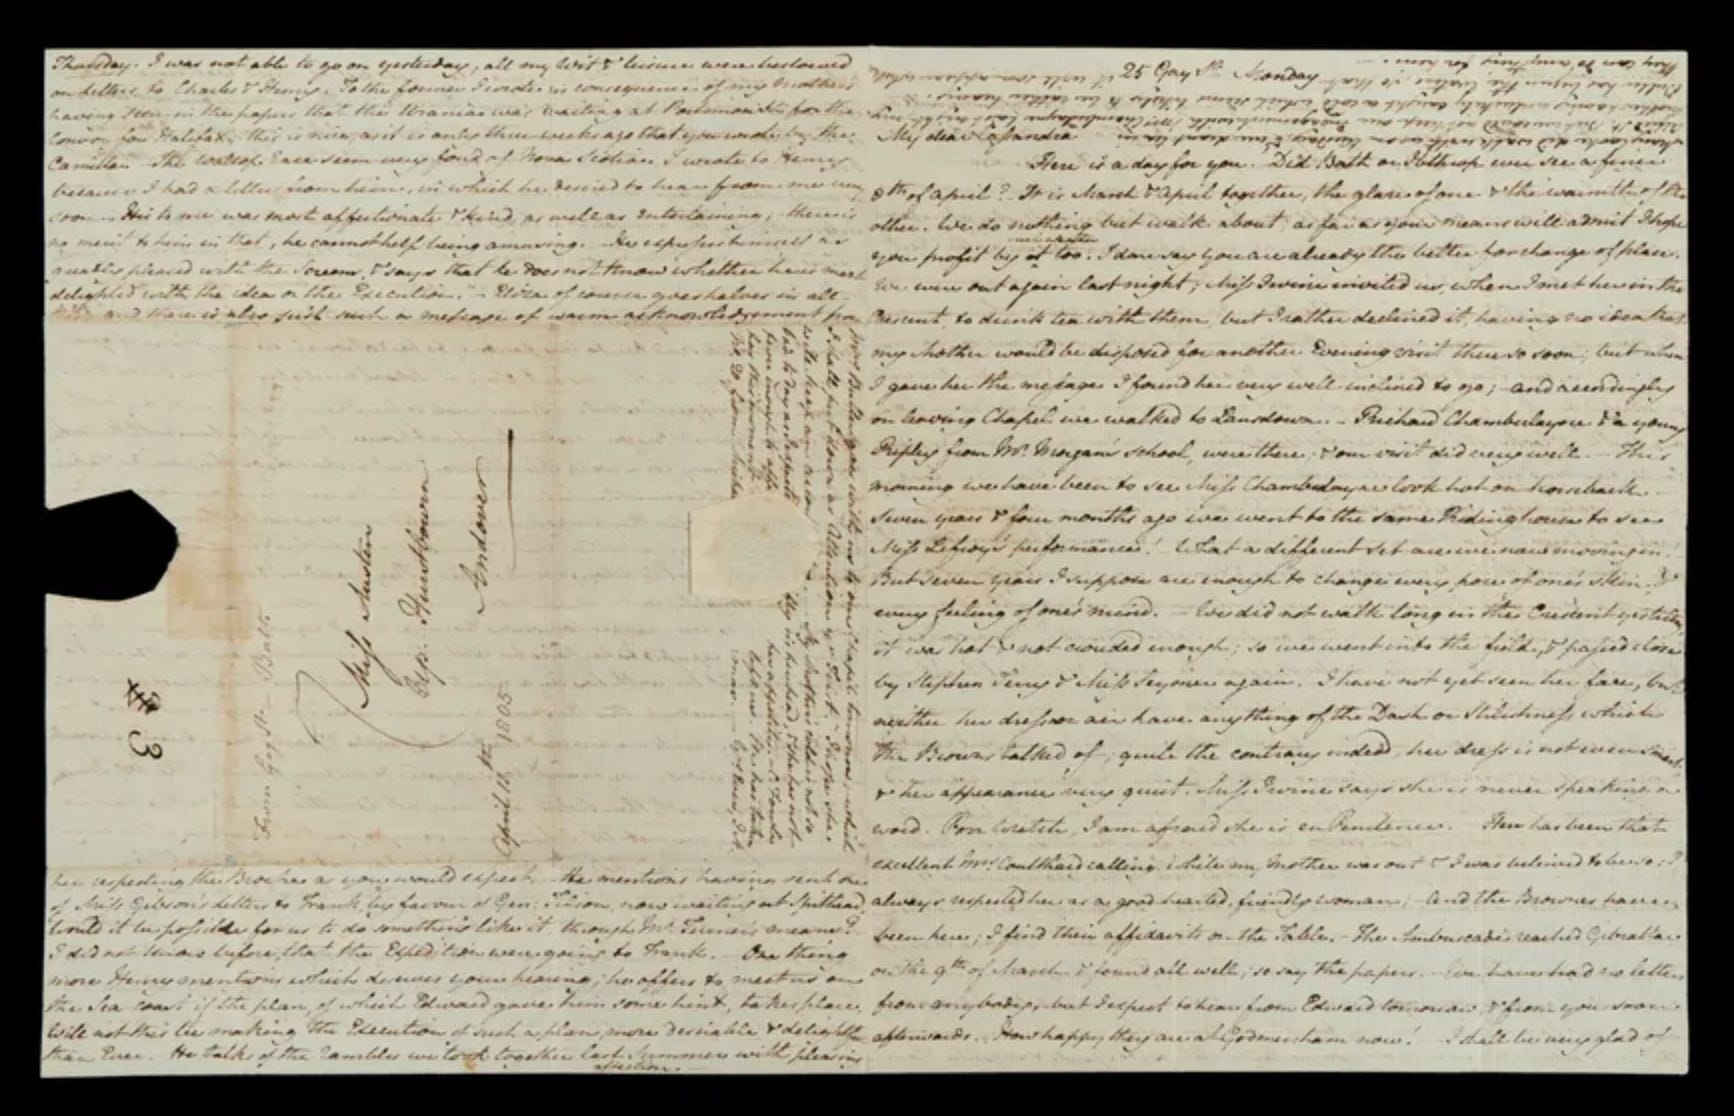 Thursday. I was not able to go on yesterday, all my Wit & leisure were bestowed
on letters to Charles & Henry. To the former I wrote in consequence of my Mother's
having seen in the papers that the Urania was waiting at Portsmouth for the
Convoy for Halifax; this is nice, as it is only three weeks ago that you wrote by the
Camilla. The Wallop race seem very fond of Nova Scotia. I wrote to Henry
because I had a letter from him, in which he desired to hear from me very
soon. His to me was most affectionate & kind, as well as entertaining; there is
no merit to him in that, he cannot help being amusing. He expresses himself as
greatly pleased with the Screen, & says that he does not know whether he is "most
delighted with the idea or the Execution." Eliza of course goes halves in all
and there is also just such a message of warm acknowledgement from
Miss Austen
Up: Hurstbourn
Andover
April 11th 1805
From Gay St. Bath
3
Mrs Buller goes with us to our Chapel tomorrow; which
I shall put down as Attention ye First. I hope she
will keep an account too. My Mother's cold is not so
bad to day as I expected. It is in her head, & she has not
fever enough to affect her appetite.
her respecting the Broche as you would expect. He mentions having sent one
of Miss Gibson's letters to Frank, by favour of Gen: Tilson, now waiting at Spithead.
Would it be possible for us to do something like it, through Mr. Turner's means?
I did not know before, that the Expedition were going to Frank. One thing
more Henry mentions which deserves your hearing; he offers to meet us on
the Sea coast if the plan, of which Edward gave him some hint, takes place.
Will not this be making the Execution of such a plan, more desirable & delightful
than Ever. He talks of the rambles we took together last Summer with pleasing
affection.
25 Gay St. Monday
My dear Cassandra
Here is a day for you. Did Bath or Ibthrop ever see a finer
8th of April? It is March & April together, the glare of one & the warmth of the
other. We do nothing but walk about; as far as your means will admit I hope
you profit by such weather too. I dare say you are already the better for change of place.
We were out again last night; Miss Irvine invited us, when I met her in the
Crescent, to drink tea with them, but I rather declined it, having no idea that
my Mother would be disposed for another Evening visit there so soon; but when
I gave her the message I found her very well inclined to go; and accordingly
on leaving Chapel we walked to Lansdown. Richard Chamberlayne & a young
Ripley from Mr. Morgan's school, were there; & our visit did very well. This
morning we have been to see Miss Chamberlayne look hot on horseback.
Seven years & four months ago we went to the same Ridinghouse to see
Miss Lefroy's performance! What a different set are we now moving in!
But seven years I suppose are enough to change every pore of one's skin, &
every feeling of one's mind. We did not walk long in the Crescent yesterday,
it was hot & not crouded enough; so we went into the field, & passed close
by Stephen Terry & Miss Seymer again. I have not yet seen her face, but
neither her dress or air have anything of the Dash or Stilishness which
the Browns talked of; quite the contrary indeed, her dress is not even smart,
& her appearance very quiet. Miss Irvine says she is never speaking a
word. Poor Wretch, I am afraid she is en Penitence. Here has been that
excellent Mrs Coulthard calling, while my Mother was out & I was believed to be so; I
always respected her as a good hearted, friendly woman; And the Brownes have
been here; I find their affidavits on the Table. The Ambuscade reached Gibraltar
on the 9th of March & found all well; so say the papers. We have had no letters
from any body, but I expect to hear from Edward tomorrow, & from you soon
afterwards. How happy they are at Godmersham now! I shall be very glad of